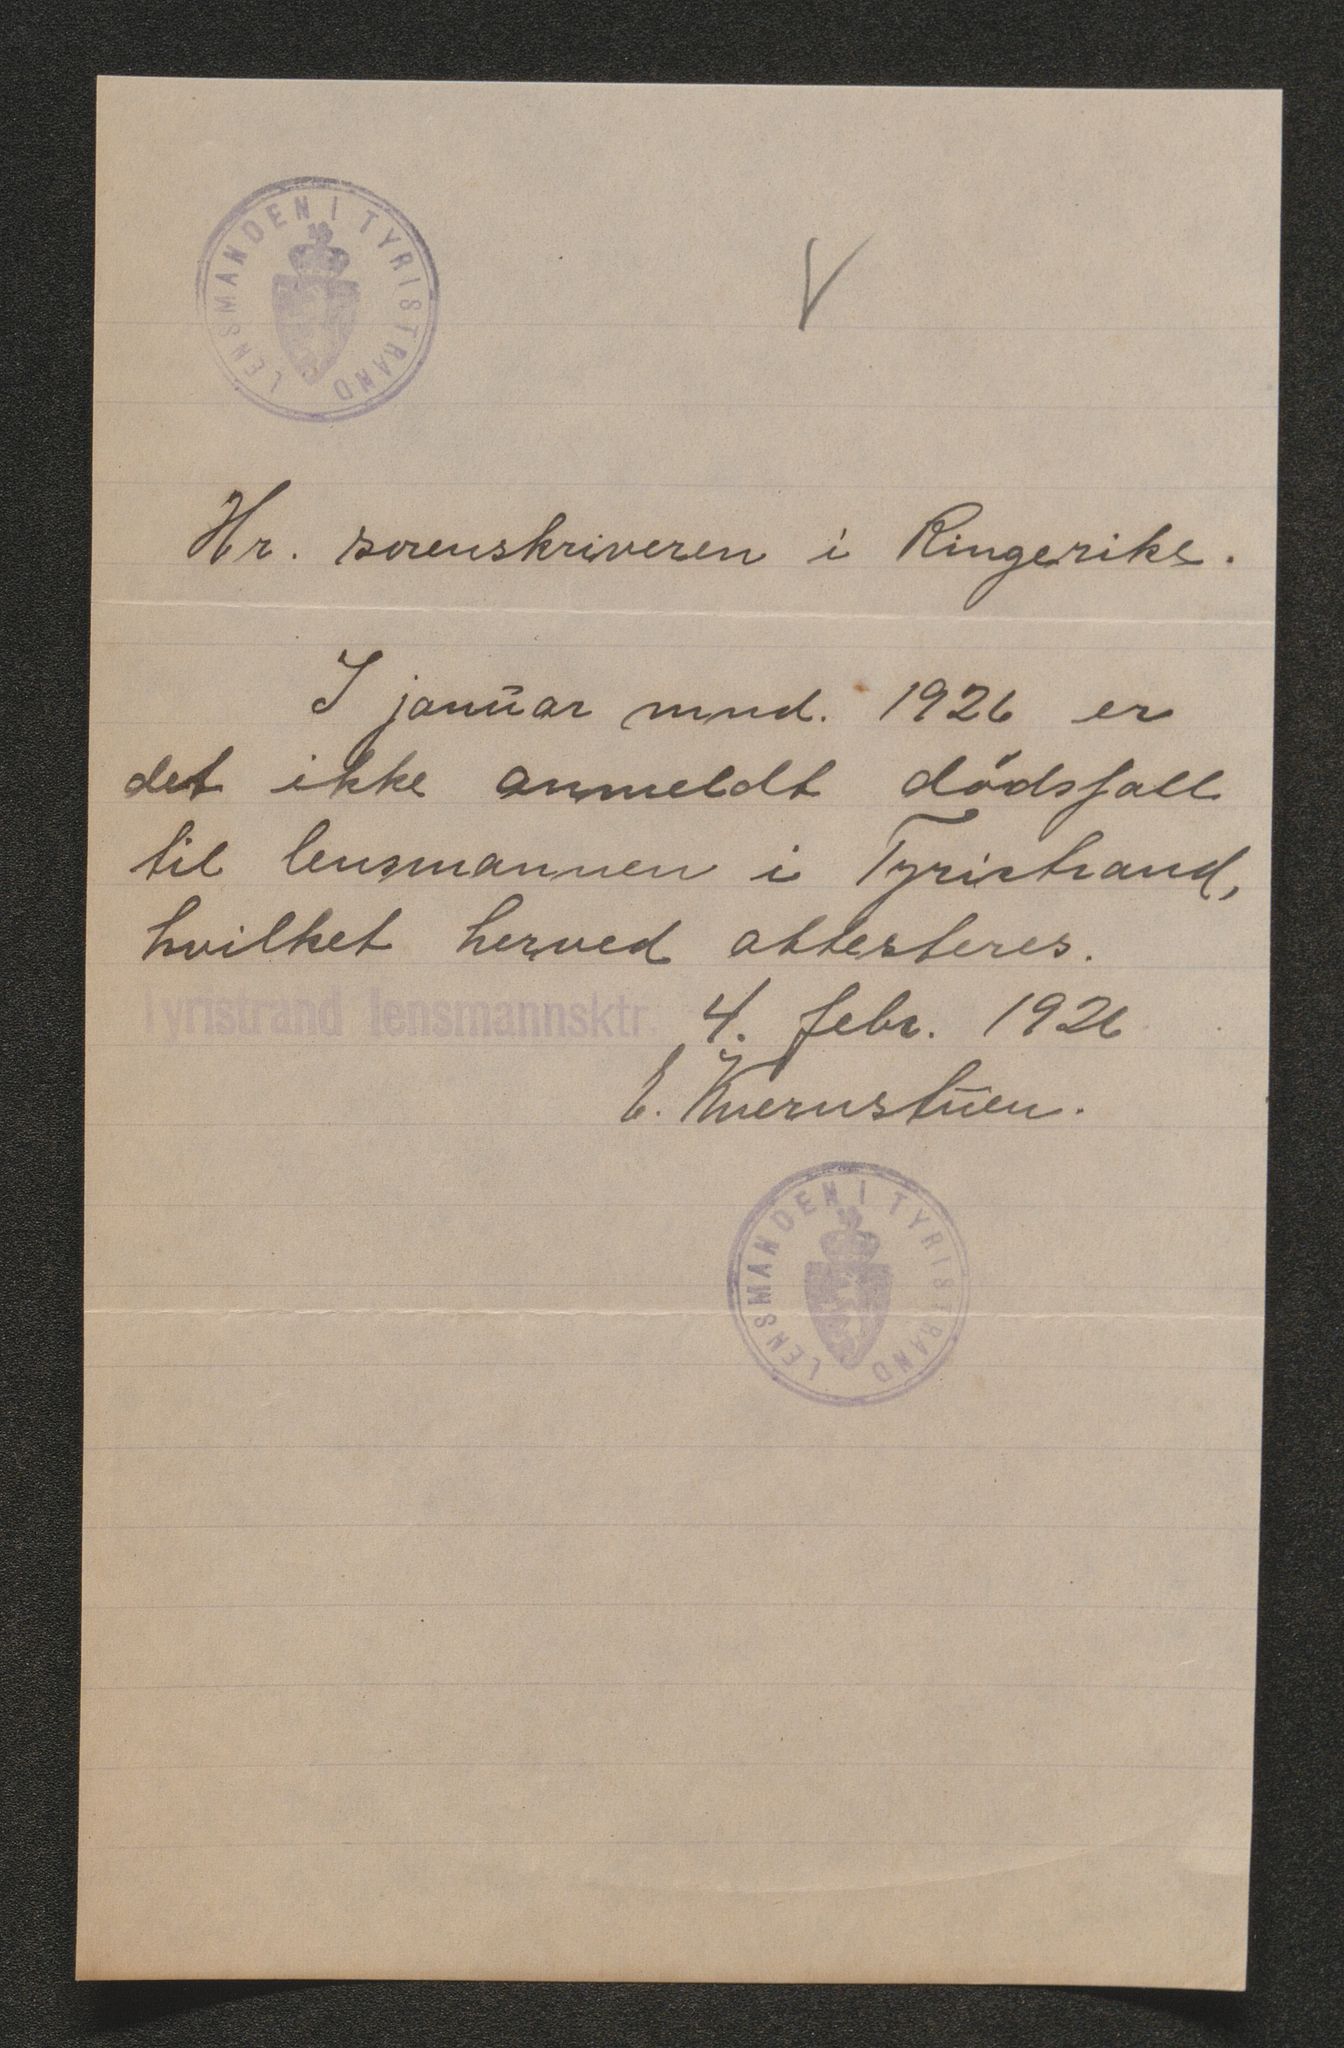 LENSMANDEN I TYRISTRAND
V
Hr. sorenskriveren i Ringerike.
I januar mnd. 1926 er
det ikke anmeldt dödsfall
til lensmannen i Tyristrand,
hvilket herved attesteres.
Tyristrand lensmannsktr. 4. febr. 1926
E. Kvernstuen.
LENSMANDEN I TYRISTRAND